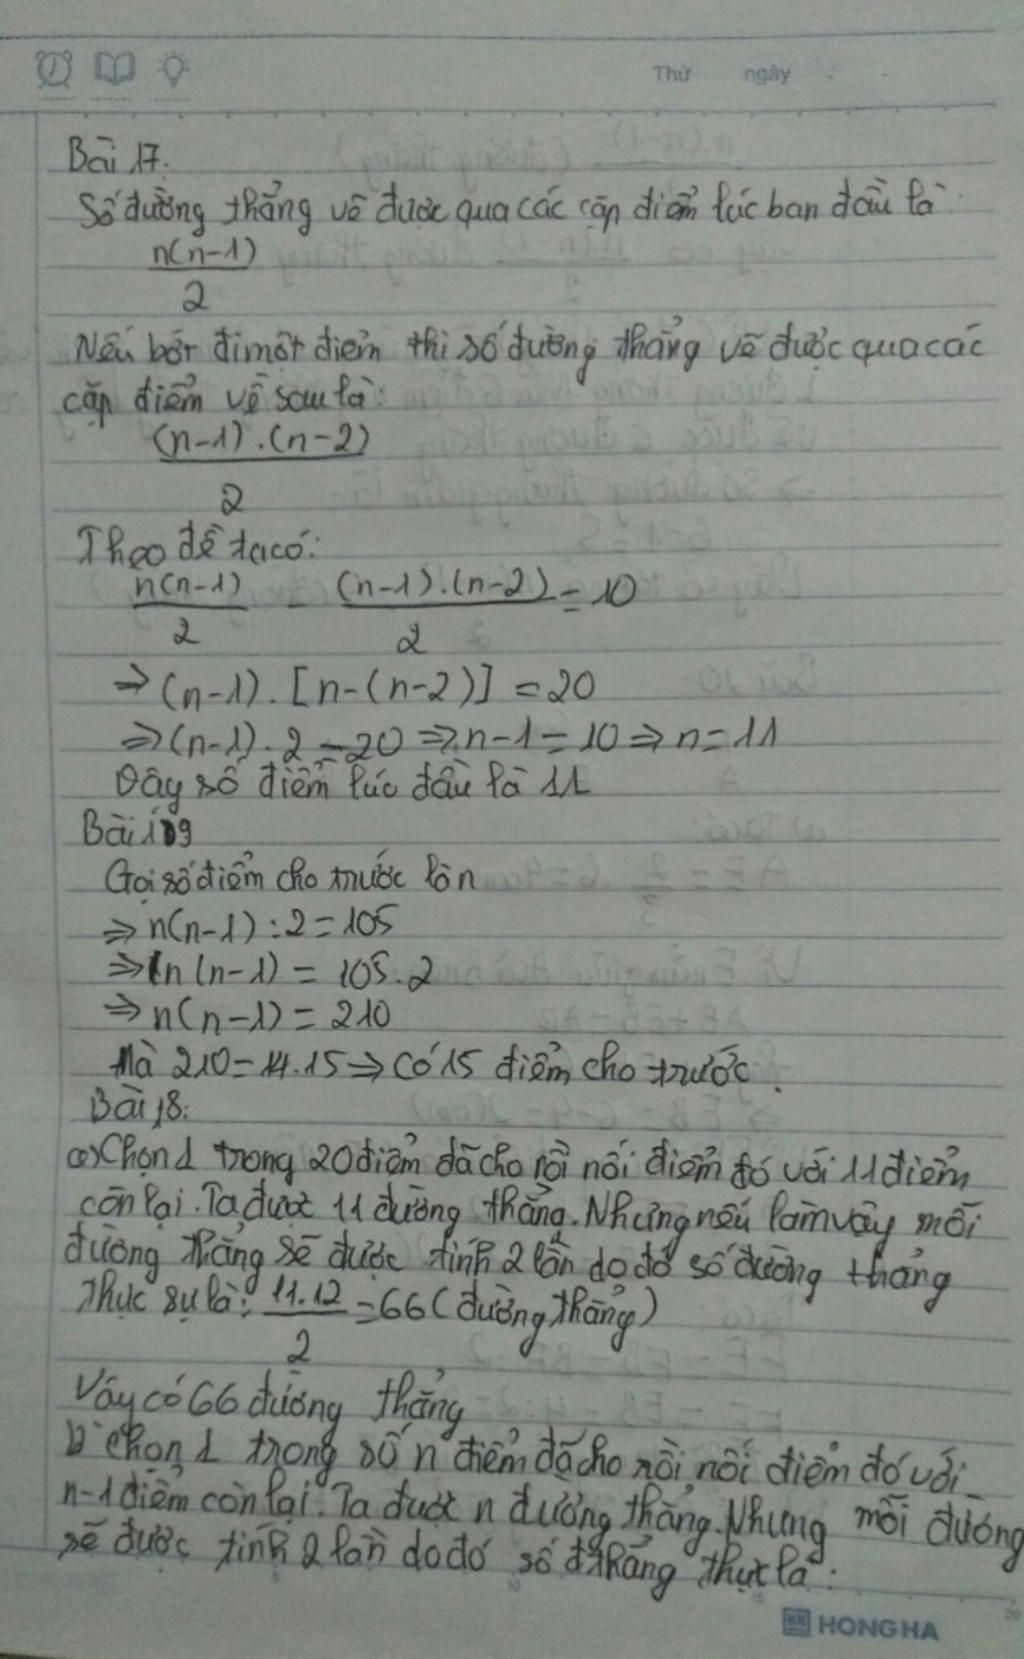 Thứ ngày
Bài 17:
Số đường thẳng vẽ được qua các cặp điểm lúc ban đầu là
n(n-1)
2
Nếu bớt đi một điểm thì số đường thẳng vẽ được qua các
cặp điểm về sau là:
(n-1).(n-2)
2
Theo đề ta có:
n(n-1) - (n-1).(n-2) = 10
2 2
⇒ (n-1). [n-(n-2)] = 20
⇒ (n-1). 2 = 20 ⇒ n-1 = 10 ⇒ n = 11
Vậy số điểm lúc đầu là 11
Bài 19
Gọi số điểm cho trước là n
⇒ n(n-1) : 2 = 105
⇒ n(n-1) = 105.2
⇒ n(n-1) = 210
Mà 210 = 14.15 ⇒ Có 15 điểm cho trước.
Bài 18:
a) Chọn 1 trong 20 điểm đã cho rồi nối điểm đó với 11 điểm
còn lại. Ta được 11 đường thẳng. Nhưng nếu làm vậy mỗi
đường thẳng sẽ được tính 2 lần do đó số đường thẳng
thực sự là: 11.12 = 66 (đường thẳng)
2
Vậy có 66 đường thẳng
b) Chọn 1 trong số n điểm đã cho rồi nối điểm đó với
n-1 điểm còn lại. Ta được n đường thẳng. Nhưng mỗi đường
sẽ được tính 2 lần do đó số đ thẳng thực là:
HONG HA